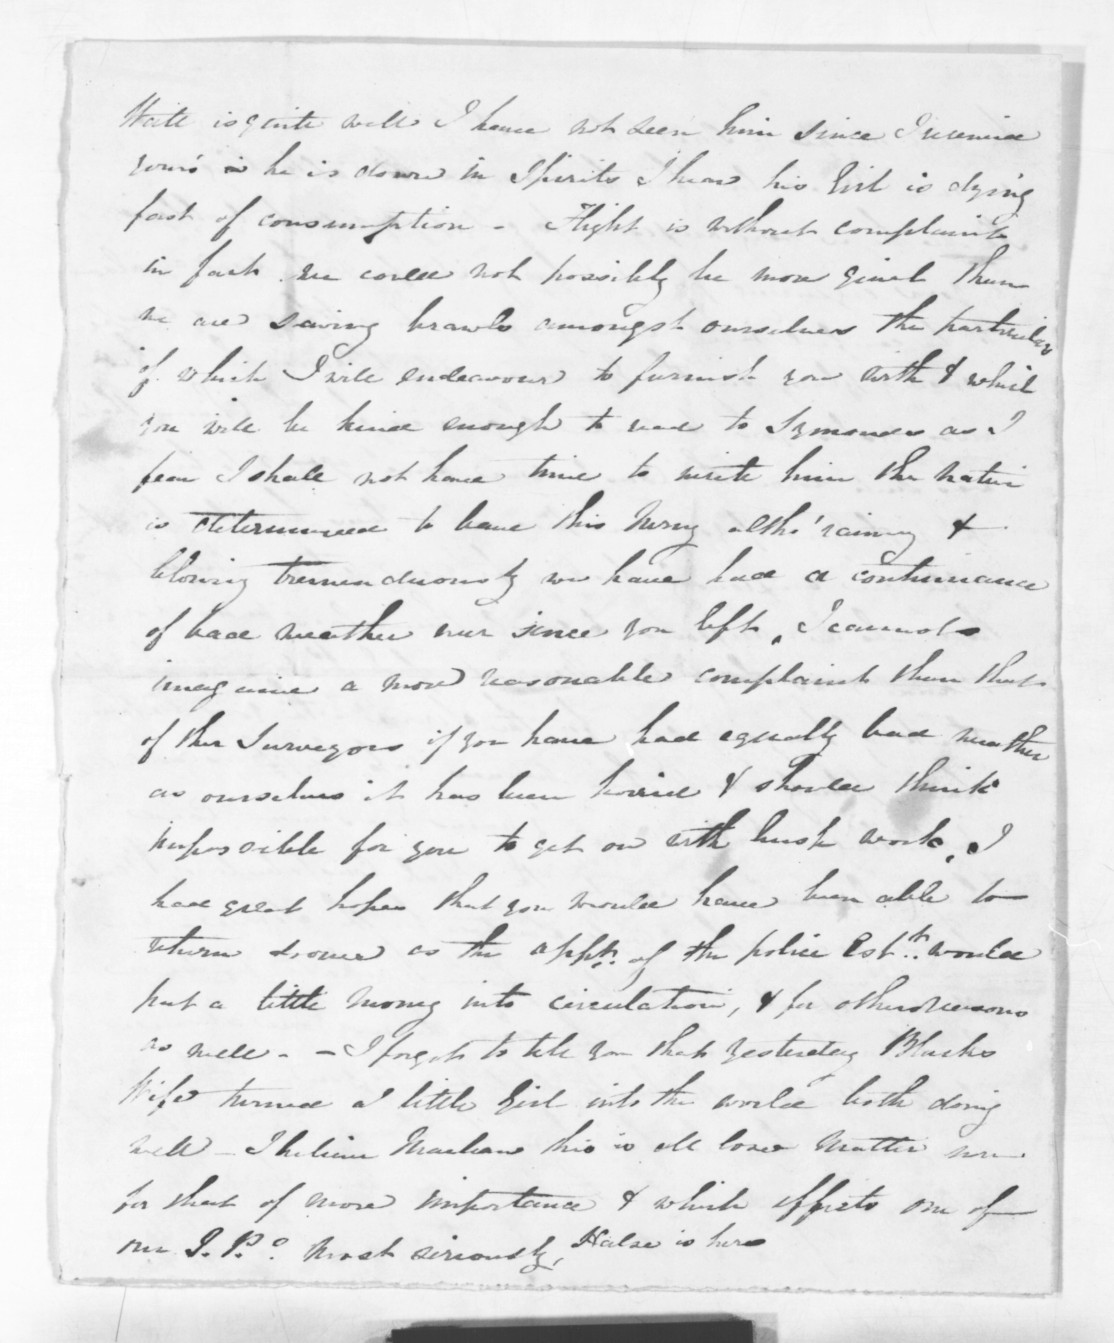 Wait is quite well I have not seen him since I received
yours he is down in Spirits I hear his Girl is dying
fast of consumption - Flight is without complaint
in fact we could not possibly be more quiet than
we are saving brawls amongst ourselves the particulars
of which I will endeavour to furnish you with & which
you will be kind enough to read to Symonds as I
fear I shall not have time to write him the Native
is determined to leave this Morng altho' raining &
blowing tremenduously we have had a continuance
of bad weather ever since you left, I cannot
imagine a more reasonable complaint than that
of the Surveyors if you have had equally bad weather
as ourselves it has been horrid & should think
impossible for you to get on with bush work, I
had great hopes that you would have been able to
return sooner as the appt. of the police Estt. would
put a little money into circulation, & for other reasons
as well - - I forgot to tell you that yesterday
Wife turned a little Girl into the world both doing
well - I believe this is all love Matter now
for that of more importance & which effects one of
our J.P.s most seriously, Halse is here